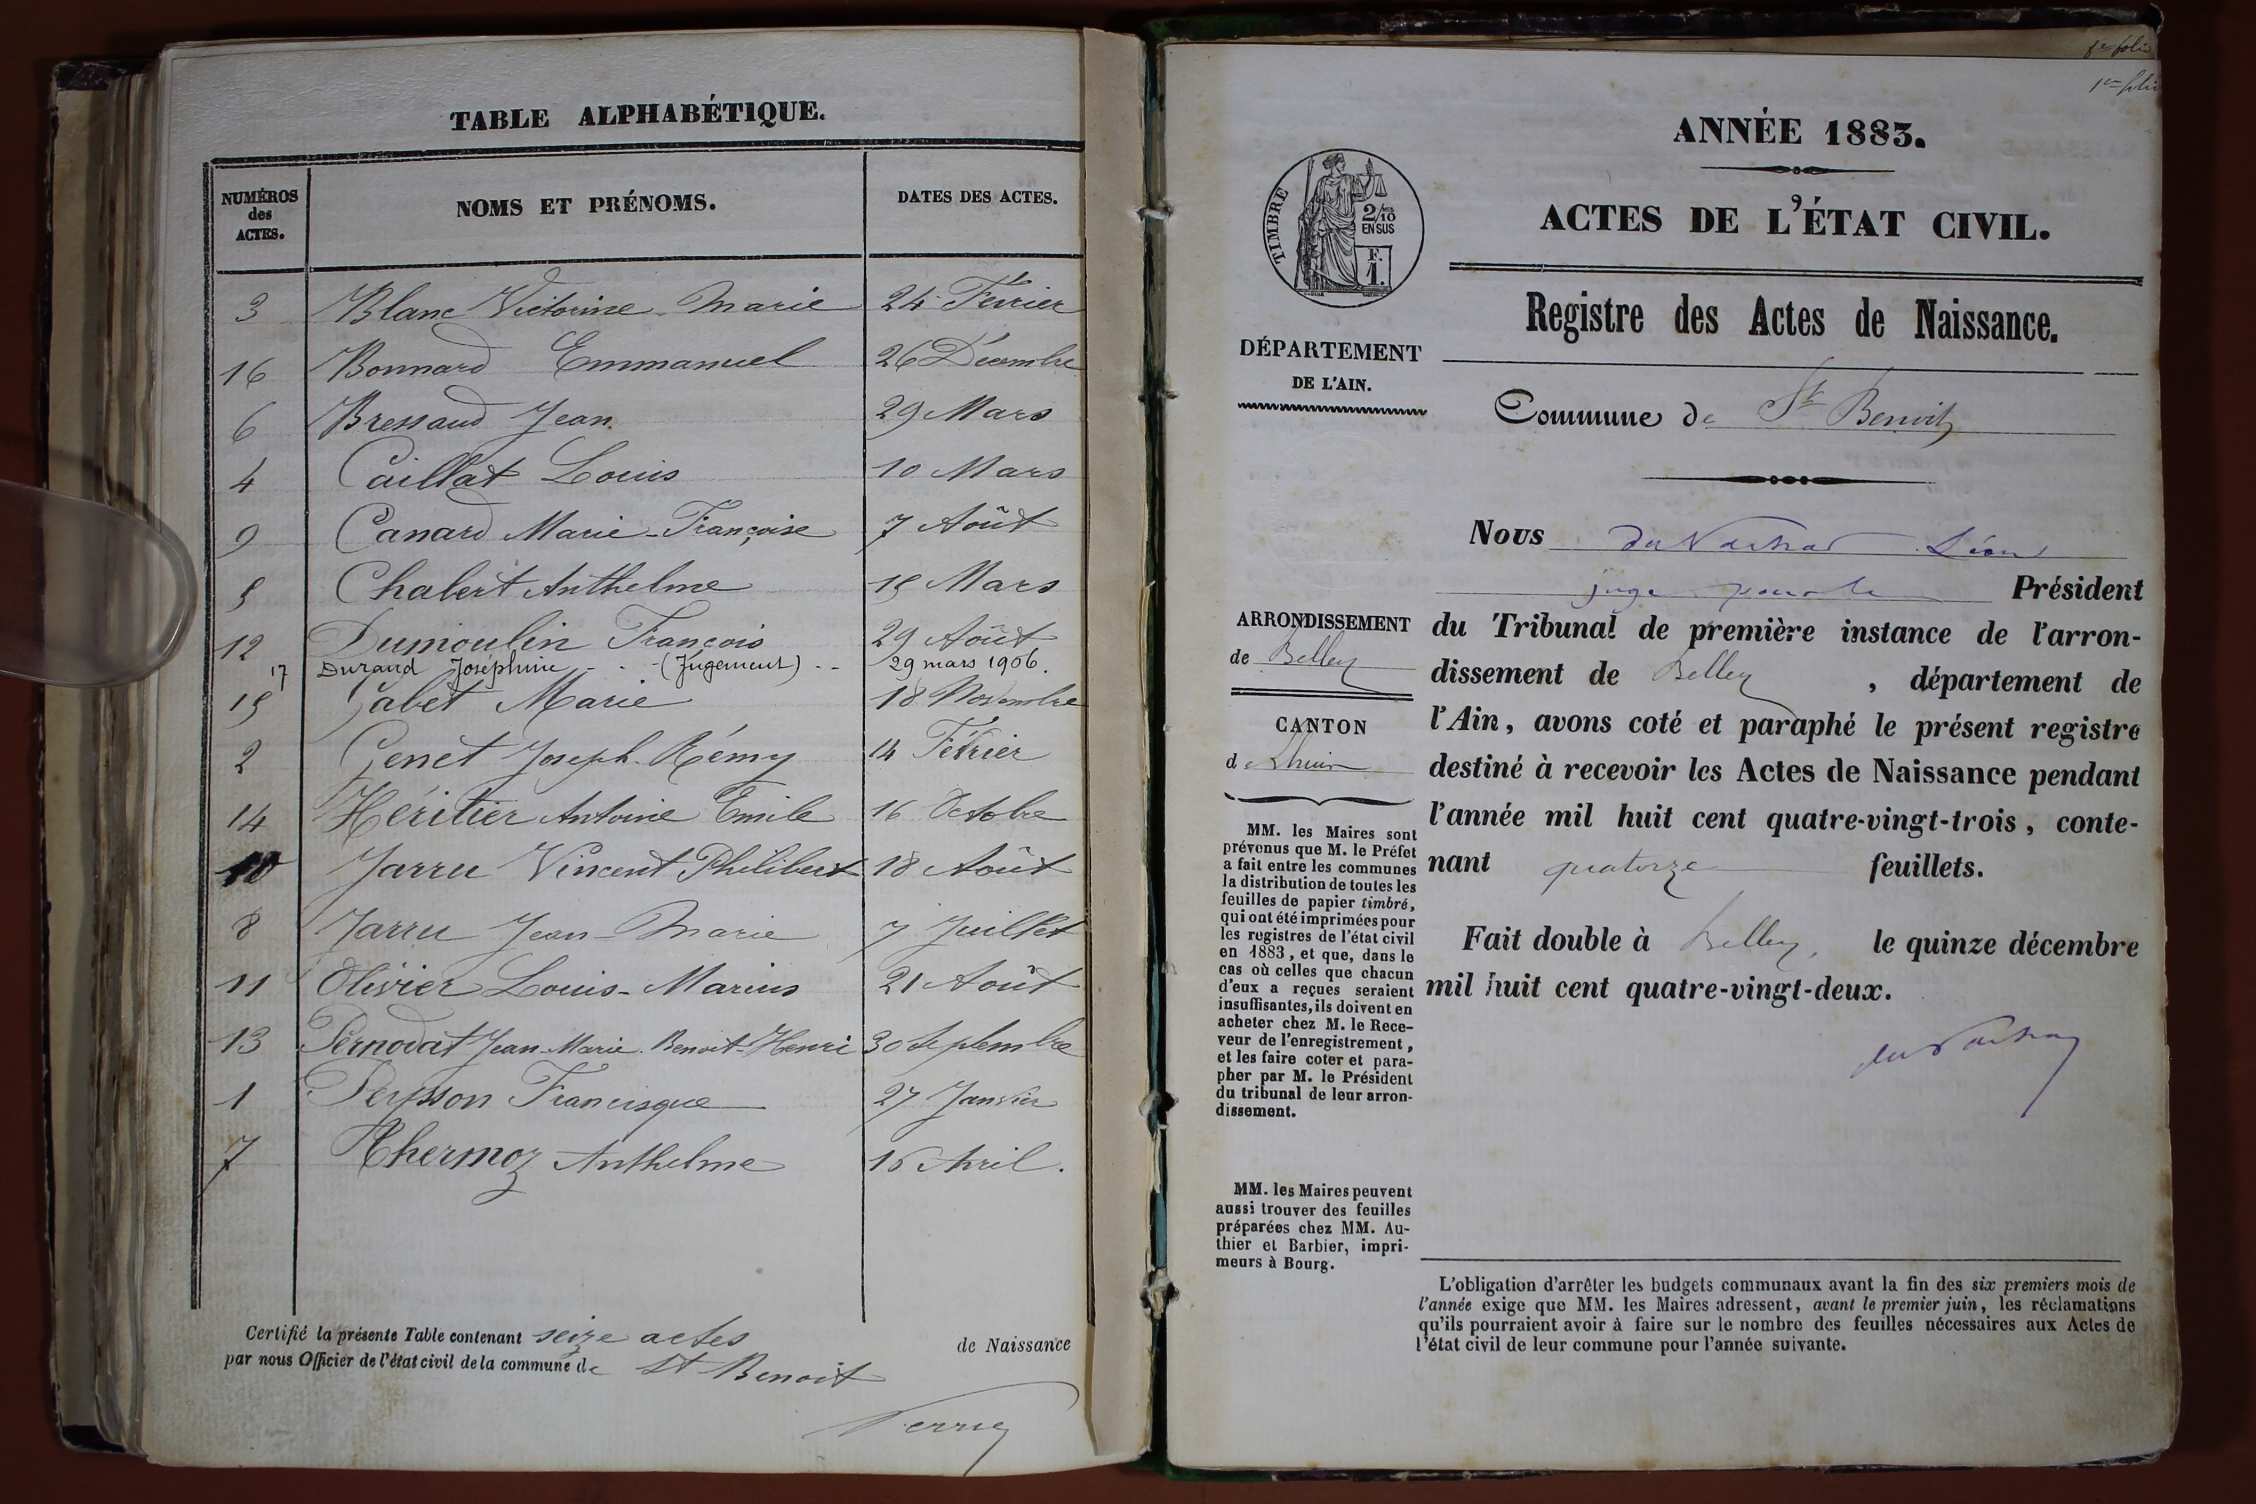 TABLE ALPHABÉTIQUE.
NUMÉROS des ACTES. NOMS ET PRÉNOMS. DATES DES ACTES.
3 Blanc Victorine Marie 24 Février
16 Bonnard Emmanuel 26 Décembre
6 Bressaud Jean 29 Mars
4 Caillat Louis 10 Mars
9 Canard Marie-Françoise 7 Août
5 Chabert Anthelme 15 Mars
12 Dumoulin François 29 Août
17 Durand Joséphine - - - (Jugement) - - 29 mars 1906.
15 Gabet Marie 18 Novembre
2 Genet Joseph-Rémy 14 Février
14 Héritier Antoine Emile 16 Octobre
10 Jarru Vincent Philibert 18 Août
8 Jarru Jean-Marie 7 Juillet
11 Olivier Louis-Marius 21 Août
13 Pernodat Jean-Marie-Benoit-Henri 30 Septembre
1 Peysson Francisque 27 Janvier
7 Thermoz Anthelme 16 Avril.
Certifié la présente Table contenant seize actes de Naissance
par nous Officier de l'état civil de la commune de St Benoit
1er folio
ANNÉE 1883.
ACTES DE L'ÉTAT CIVIL.
TIMBRE
2/10
EN SUS
F.
1.
Registre des Actes de Naissance.
DÉPARTEMENT
DE L'AIN.
Commune de St Benoit
Nous Léon
juge pour le Président
ARRONDISSEMENT
de Belley
CANTON
de Lhuis
du Tribunal de première instance de l'arron-
dissement de Belley, département de
l'Ain, avons coté et paraphé le présent registre
destiné à recevoir les Actes de Naissance pendant
l'année mil huit cent quatre-vingt-trois, conte-
nant quatorze feuillets.
Fait double à Belley, le quinze décembre
mil huit cent quatre-vingt-deux.
MM. les Maires sont
prévenus que M. le Préfet
a fait entre les communes
la distribution de toutes les
feuilles de papier timbré,
qui ont été imprimées pour
les registres de l'état civil
en 1883, et que, dans le
cas où celles que chacun
d'eux a reçues seraient
insuffisantes, ils doivent en
acheter chez M. le Rece-
veur de l'enregistrement,
et les faire coter et para-
pher par M. le Président
du tribunal de leur arron-
dissement.
MM. les Maires peuvent
aussi trouver des feuilles
préparées chez MM. Au-
thier et Barbier, impri-
meurs à Bourg.
L'obligation d'arrêter les budgets communaux avant la fin des six premiers mois de
l'année exige que MM. les Maires adressent, avant le premier juin, les réclamations
qu'ils pourraient avoir à faire sur le nombre des feuilles nécessaires aux Actes de
l'état civil de leur commune pour l'année suivante.